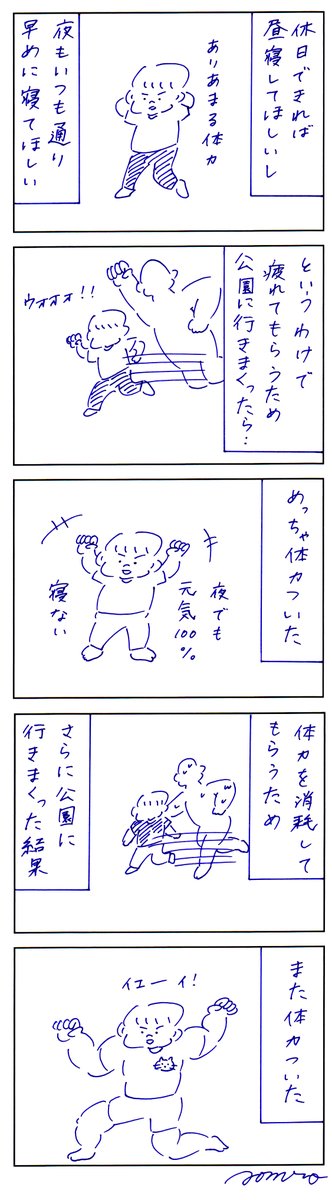 休日できれば
昼寝してほしいし
ありあまる体力
夜もいつも通り
早めに寝てほしい
というわけで
疲れてもらうため
公園に行きまくったら…
ウオォォ!!
めっちゃ体力ついた
夜でも
元気100%
寝ない
体力を消耗して
もらうため
さらに公園に
行きまくった結果
また体力ついた
イエーイ!